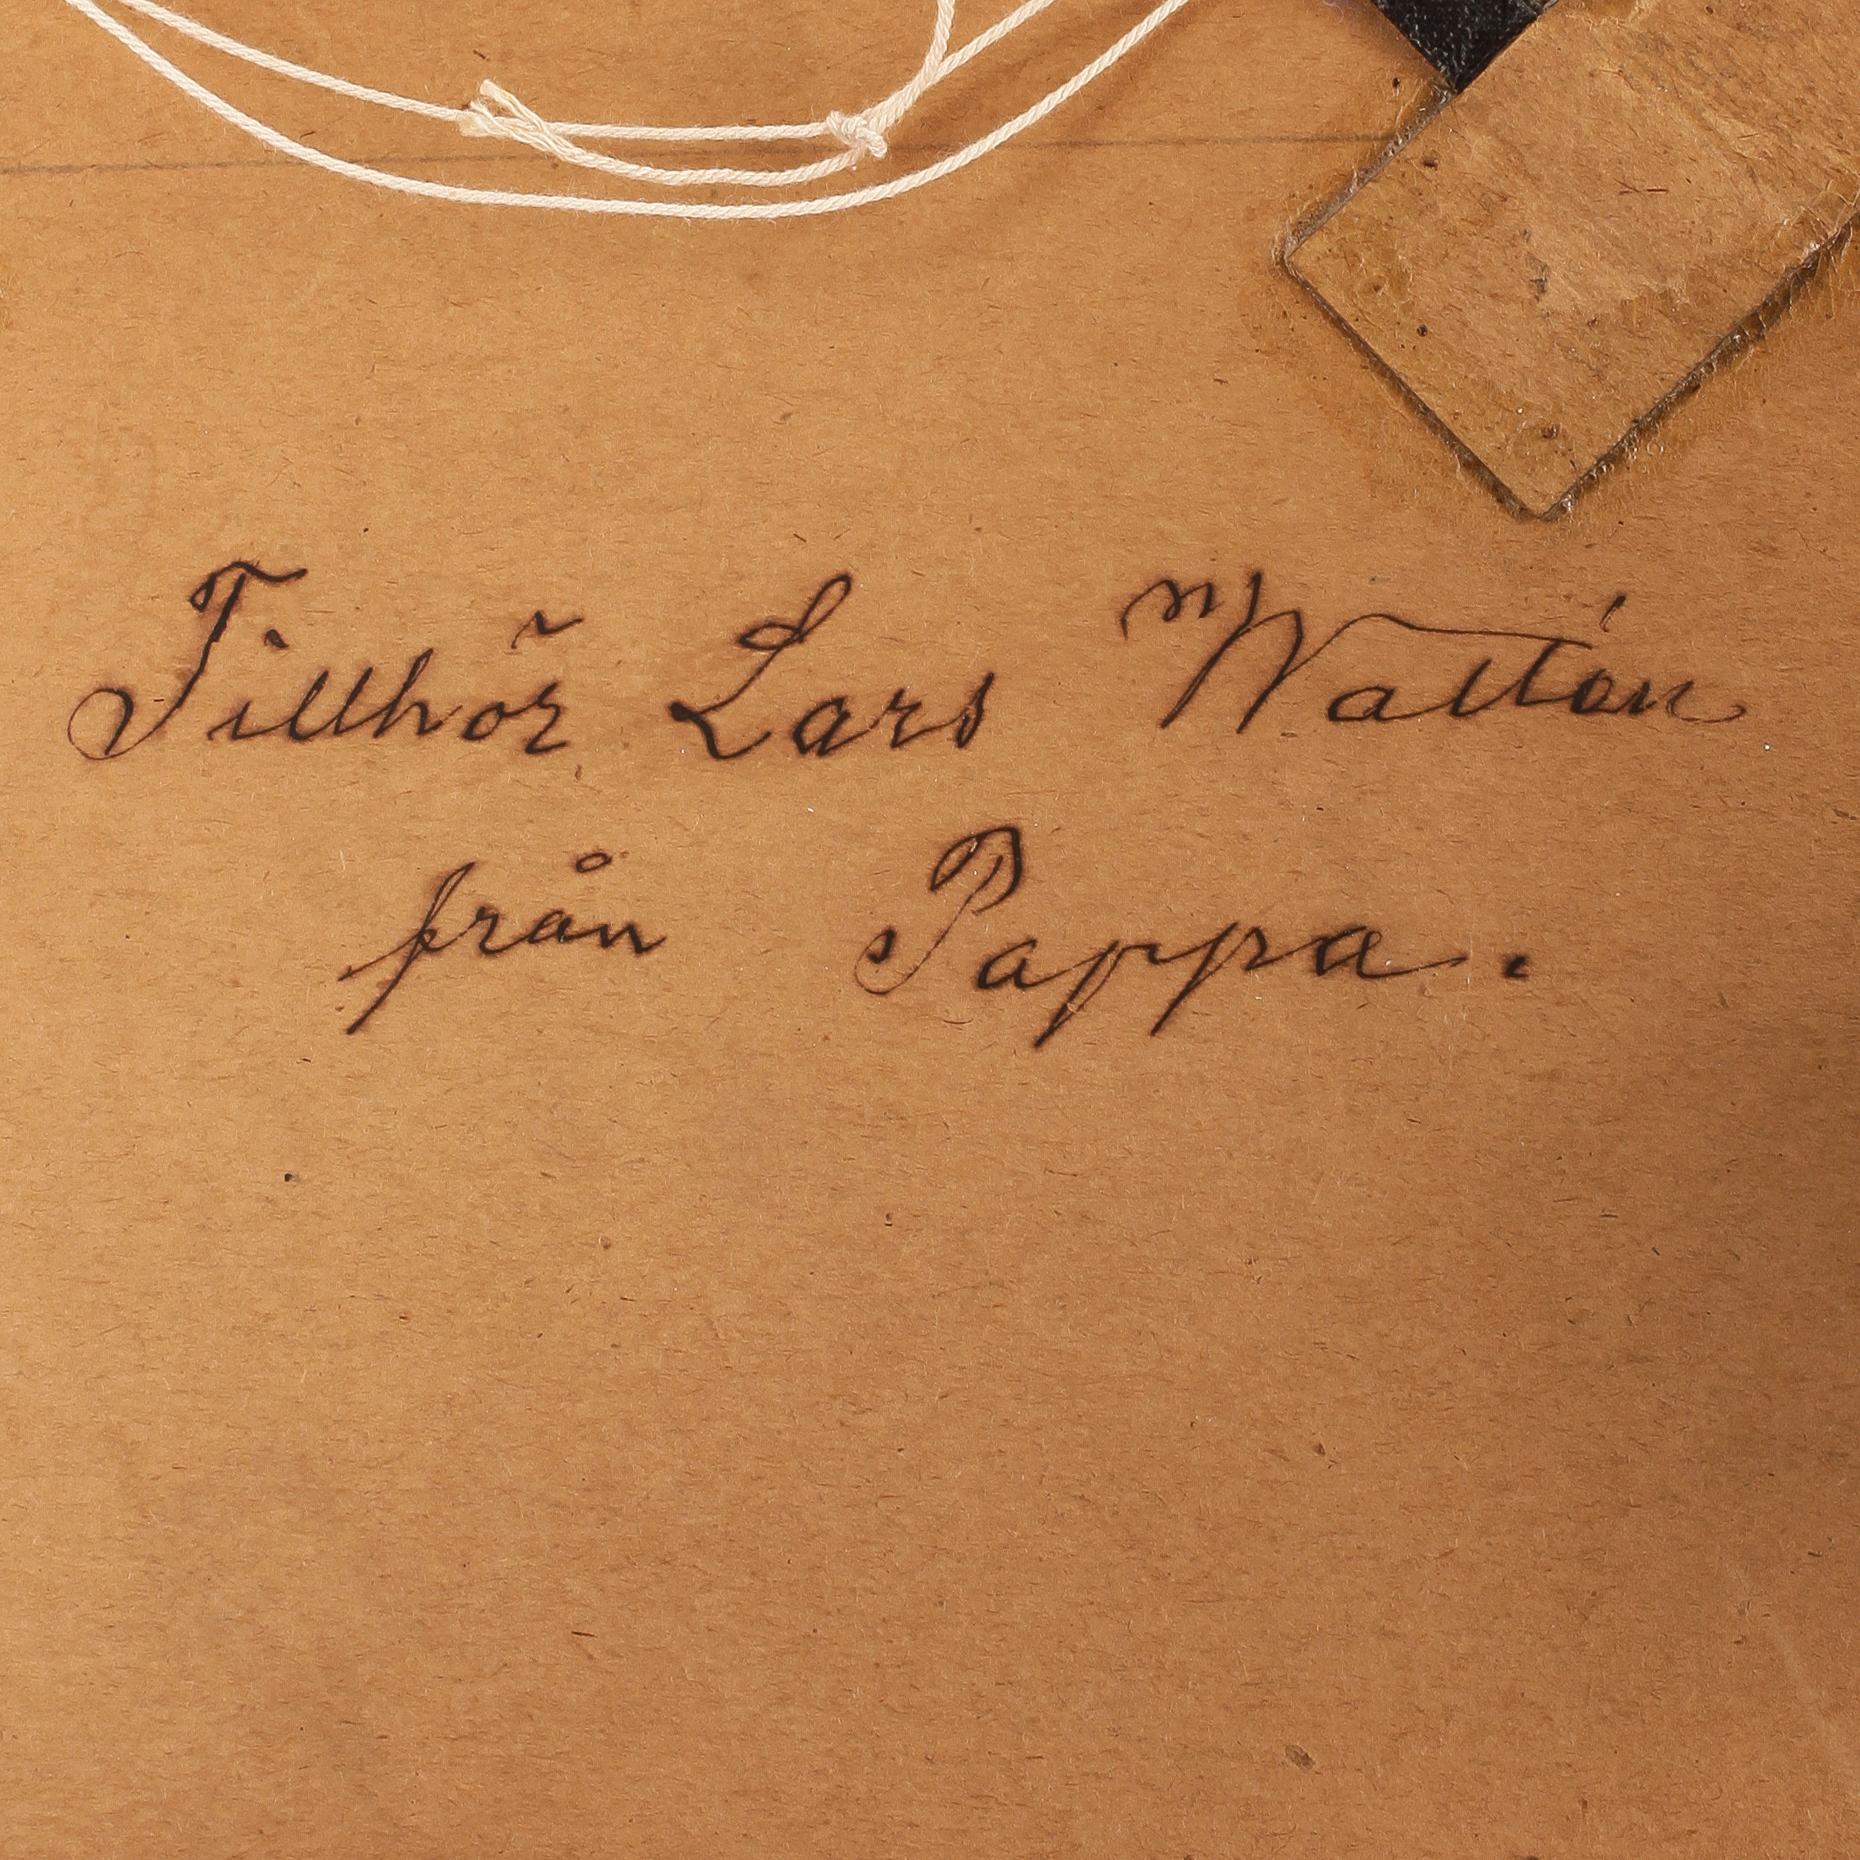 Tillhör Lars Wattén
från Pappa.